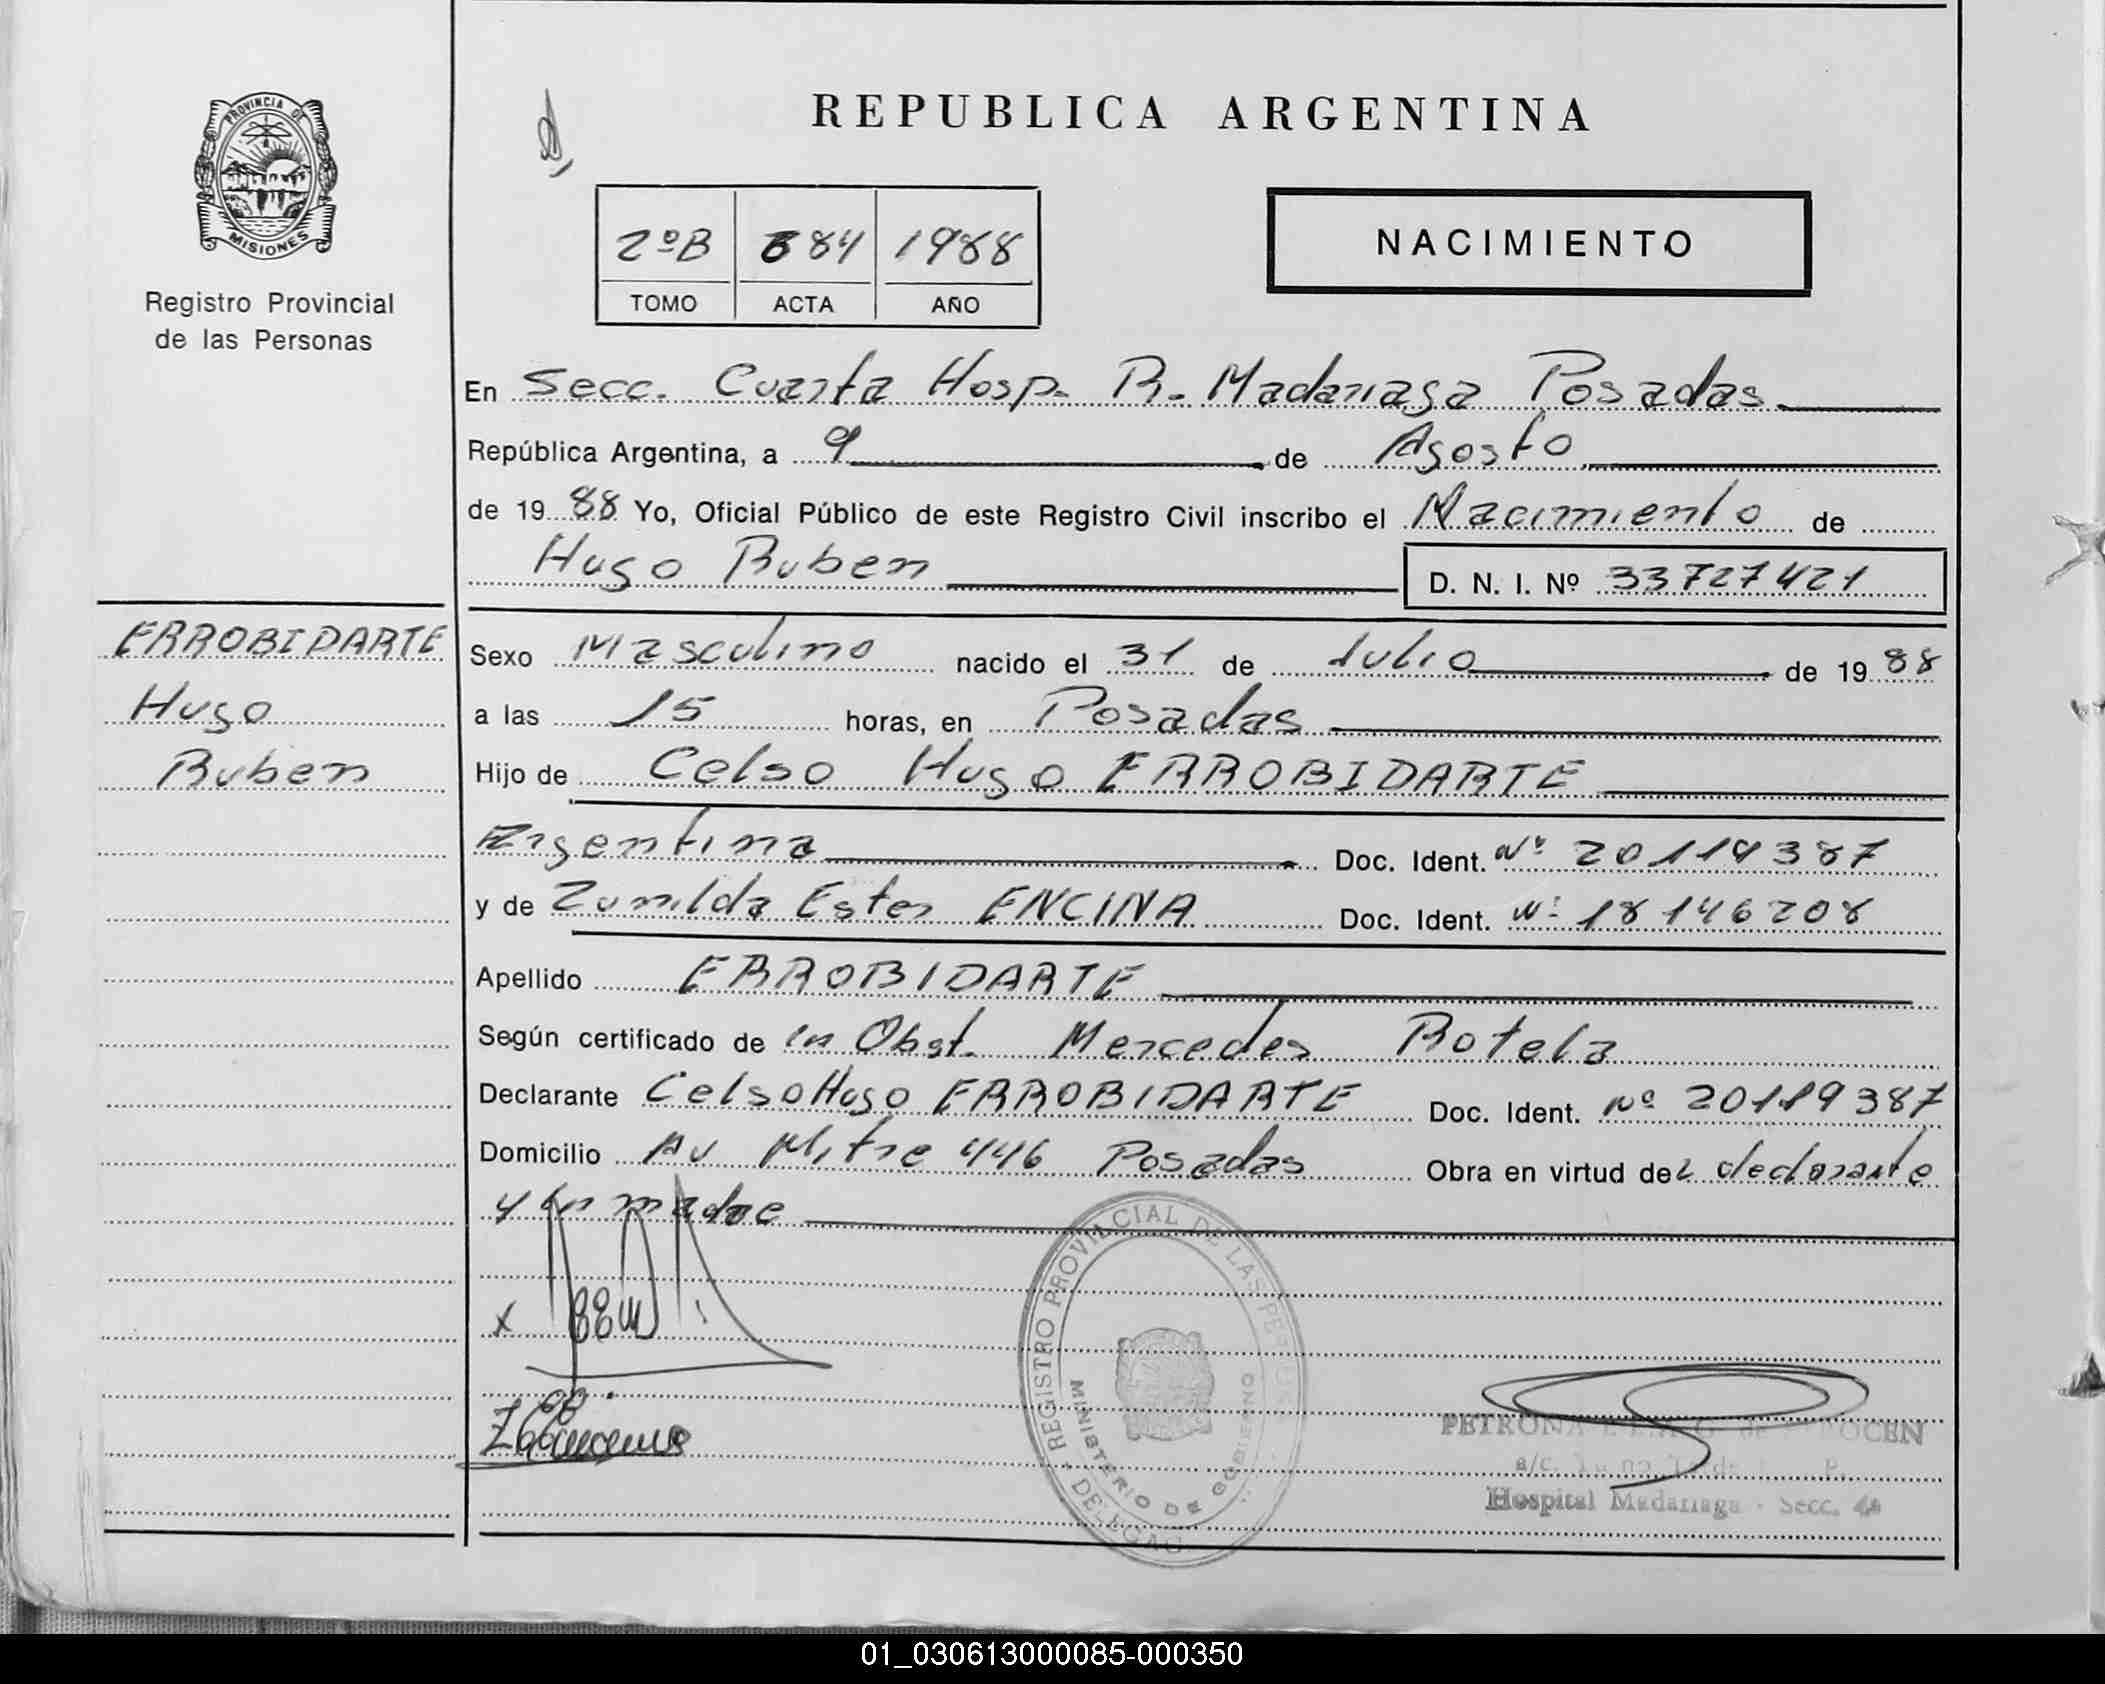 REPUBLICA ARGENTINA
PROVINCIA DE
MISIONES
Registro Provincial
de las Personas
2ºB 884 1988
TOMO ACTA AÑO
NACIMIENTO
En Secc. Cuarta Hosp. R. Madariaga Posadas
República Argentina, a 9 de Agosto
de 1988 Yo, Oficial Público de este Registro Civil inscribo el Nacimiento de
Hugo Ruben D. N. I. Nº 33727421
ERROBIDARTE
Hugo
Ruben
Sexo Masculino nacido el 31 de Julio de 1988
a las 15 horas, en Posadas
Hijo de Celso Hugo ERROBIDARTE
Argentina Doc. Ident. Nº 20119387
y de Zunilda Ester ENCINA Doc. Ident. Nº 18146208
Apellido ERROBIDARTE
Según certificado de la Obst. Mercedes Rotela
Declarante Celso Hugo ERROBIDARTE Doc. Ident. Nº 20119387
Domicilio Av Mitre 446 Posadas Obra en virtud del declarante
y la madre
x
REGISTRO PROVINCIAL DE LAS
MINISTERIO DE GOBIERNO
PETRONA de
a/c.
Hospital Madariaga - Secc. 4a
01_030613000085-000350